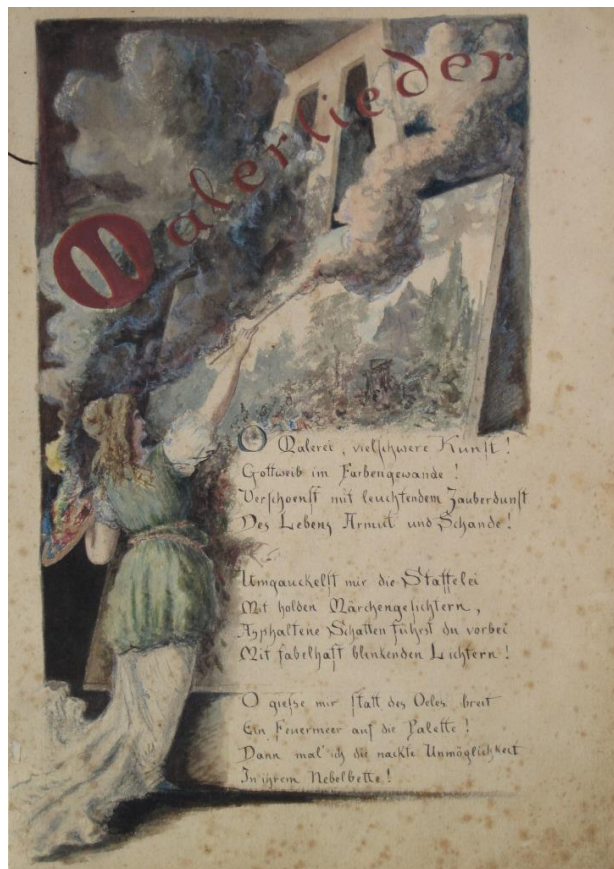 Malerlieder
O Malerei, vielschwere Kunst!
Gottweib im Farbengewande!
Verschoenst mit leuchtendem Zauberdunst
Des Lebens Armut und Schande!
Umgauckelst mir die Staffelei
Mit holden Märchengesichtern,
Asphaltene Schatten führst du vorbei
Mit fabelhaft blinkenden Lichtern!
O giesse mir statt des Oeles breit
Ein Feuermeer auf die Palette!
Dann mal' ich die nackte Unmöglichkeit
In ihrem Nebelbette!